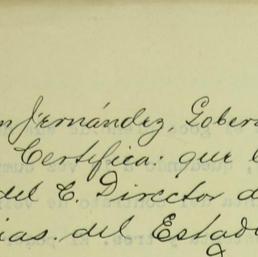 n Fernández, Gober
Certifica: que l
del C. Director d
ias del Estad